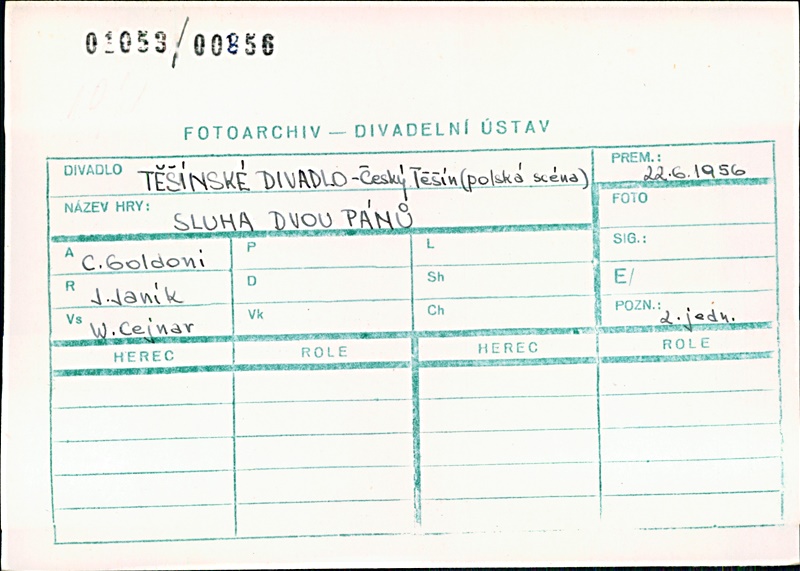 01053/00856
FOTOARCHIV — DIVADELNÍ ÚSTAV
DIVADLO TĚŠÍNSKÉ DIVADLO - Český Těšín (polská scéna)
PREM.: 22.6.1956
NÁZEV HRY: SLUHA DVOU PÁNŮ
FOTO
A C. Goldoni
P
L
SIG.:
R J. Janík
D
Sh
E/
Vs W. Cejnar
Vk
Ch
POZN.: 2. jedn.
HEREC ROLE HEREC ROLE